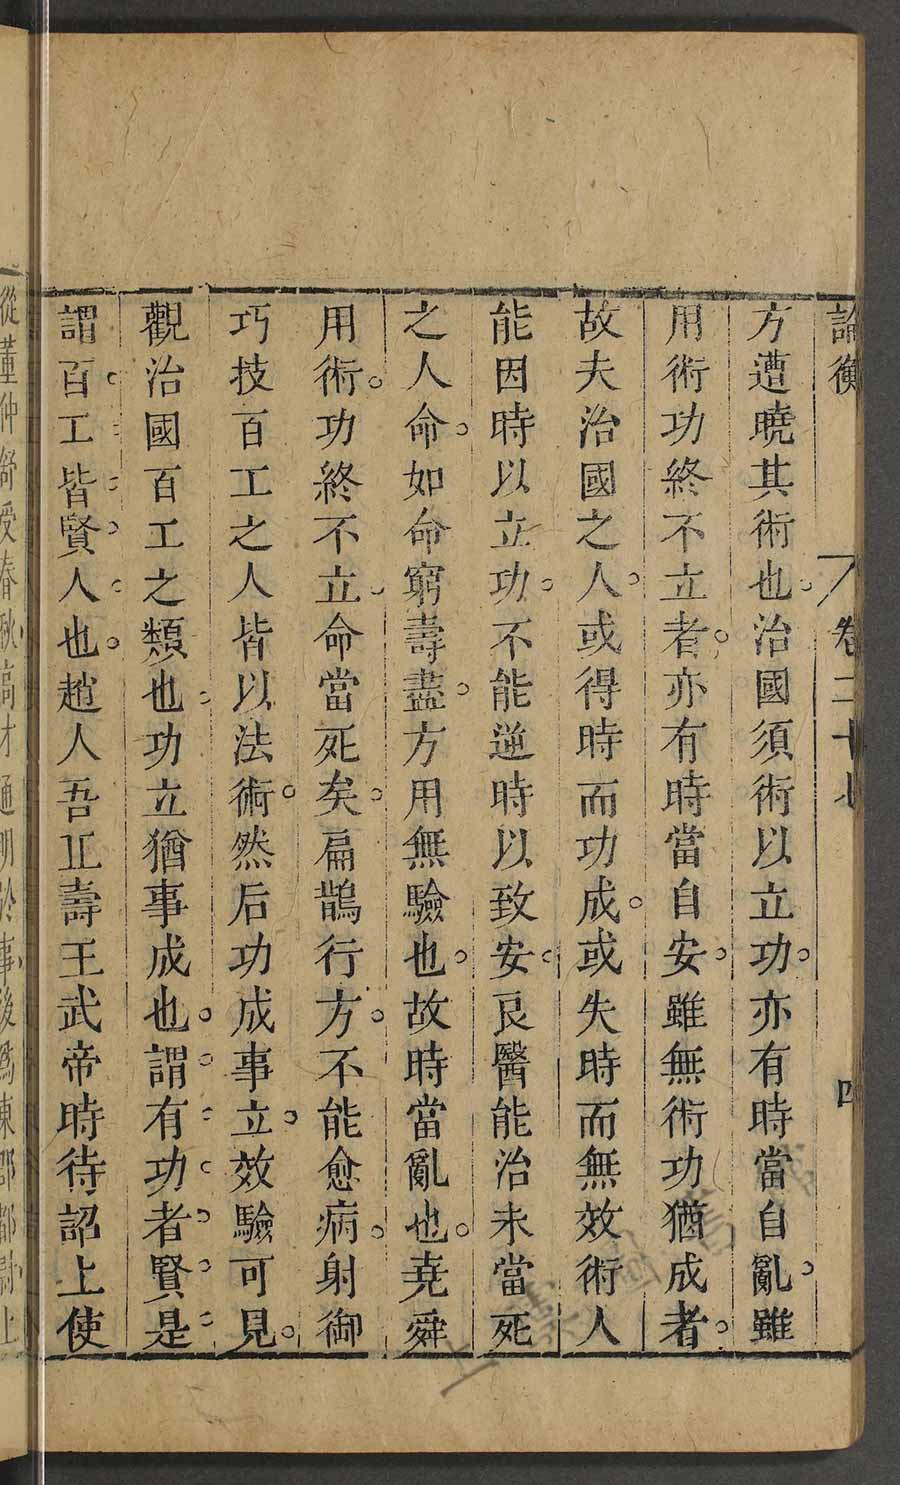 論衡 卷二十七 四
方遭曉其術也治國須術以立功亦有時當自亂雖
用術功終不立者亦有時當自安雖無術功猶成者
故夫治國之人或得時而功成或失時而無效術人
能因時以立功不能逆時以致安良醫能治未當死
之人命如命窮壽盡方用無驗也故時當亂也堯舜
用術功終不立命當死矣扁鵲行方不能愈病射御
巧技百工之人皆以法術然后功成事立效驗可見
觀治國百工之類也功立猶事成也謂有功者賢是
謂百工皆賢人也趙人吾丘壽王武帝時待詔上使
從董仲舒受春秋高才通明於事後為東郡都尉上